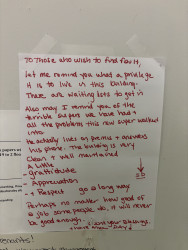 To Those who wish to find fault,
Let me remind you what a privilege
it is to live in this building.
There are waiting lists to get in
Also may I remind you of the
terrible supers we have had +
all the problems this new super walked
into
He actually lives on premises + answers
his phone. The building is very
clean + well maintained
A little
- Gratitude
- Appreciation
+ Respect go a long way
Perhaps no matter how good of
a job some people do, it will never
be good enough.